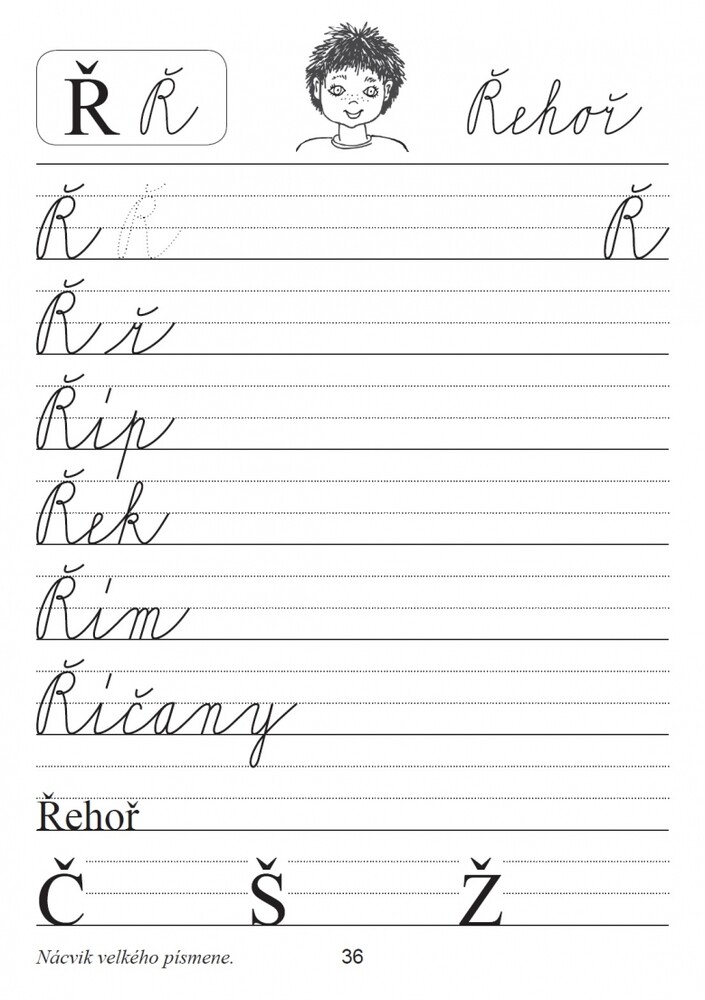 Ř Ř Řehoř
Ř Ř Ř
Ř ř
Říp
Řek
Řím
Říčany
Řehoř
Č Š Ž
Nácvik velkého písmene. 36